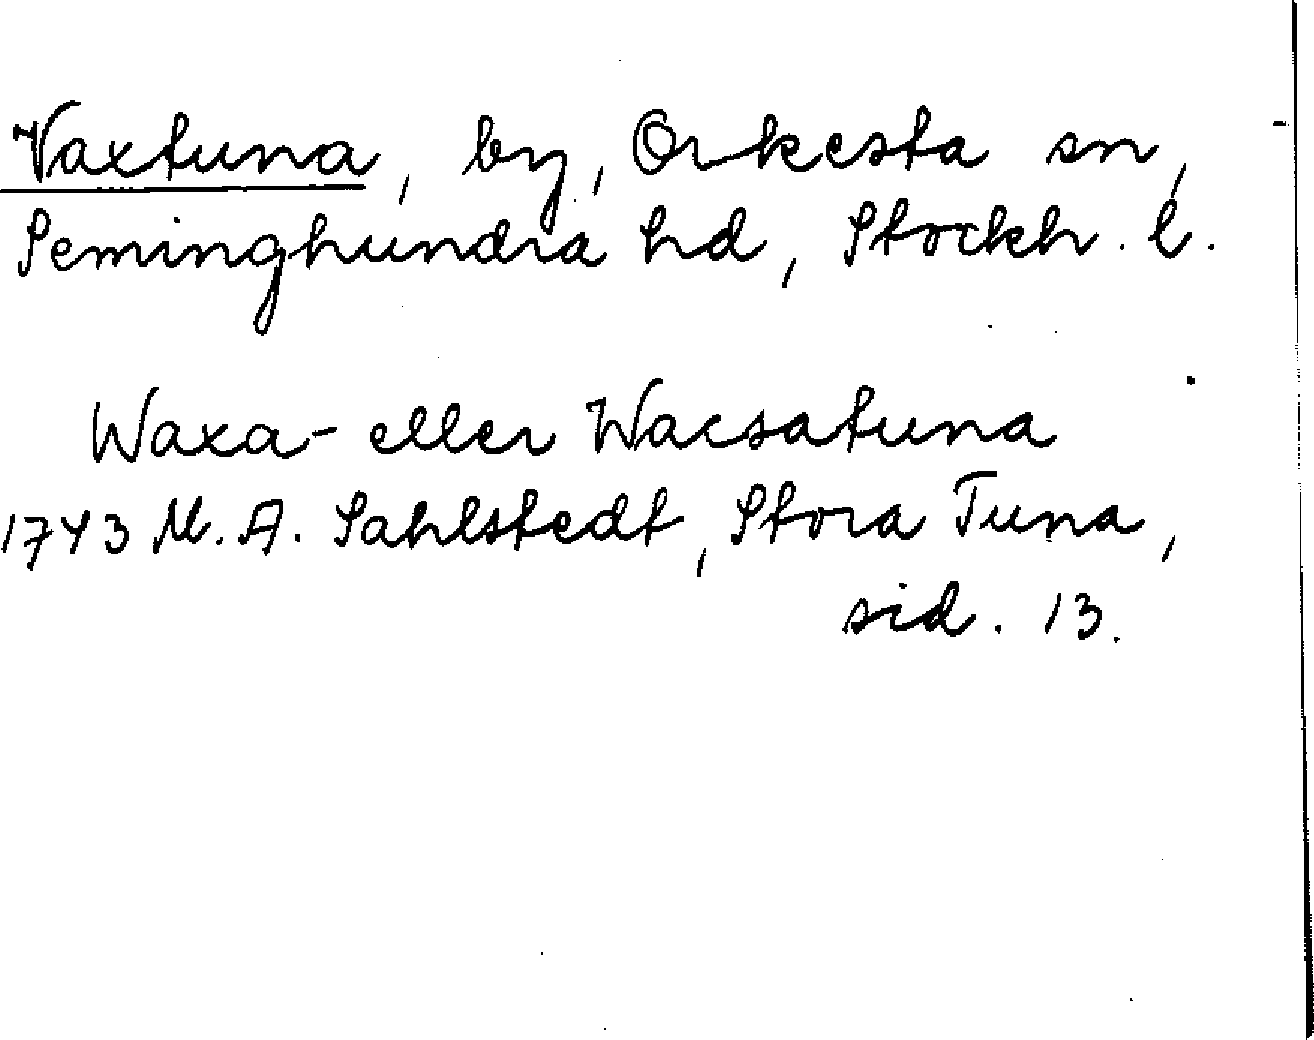 Vaxtuna, by, Orkesta sn,
Seminghundra hd, Stockh. l.
Waxa- eller Wacsatuna
1743 M. A. Sahlstedt, Stora Tuna,
sid. 13.